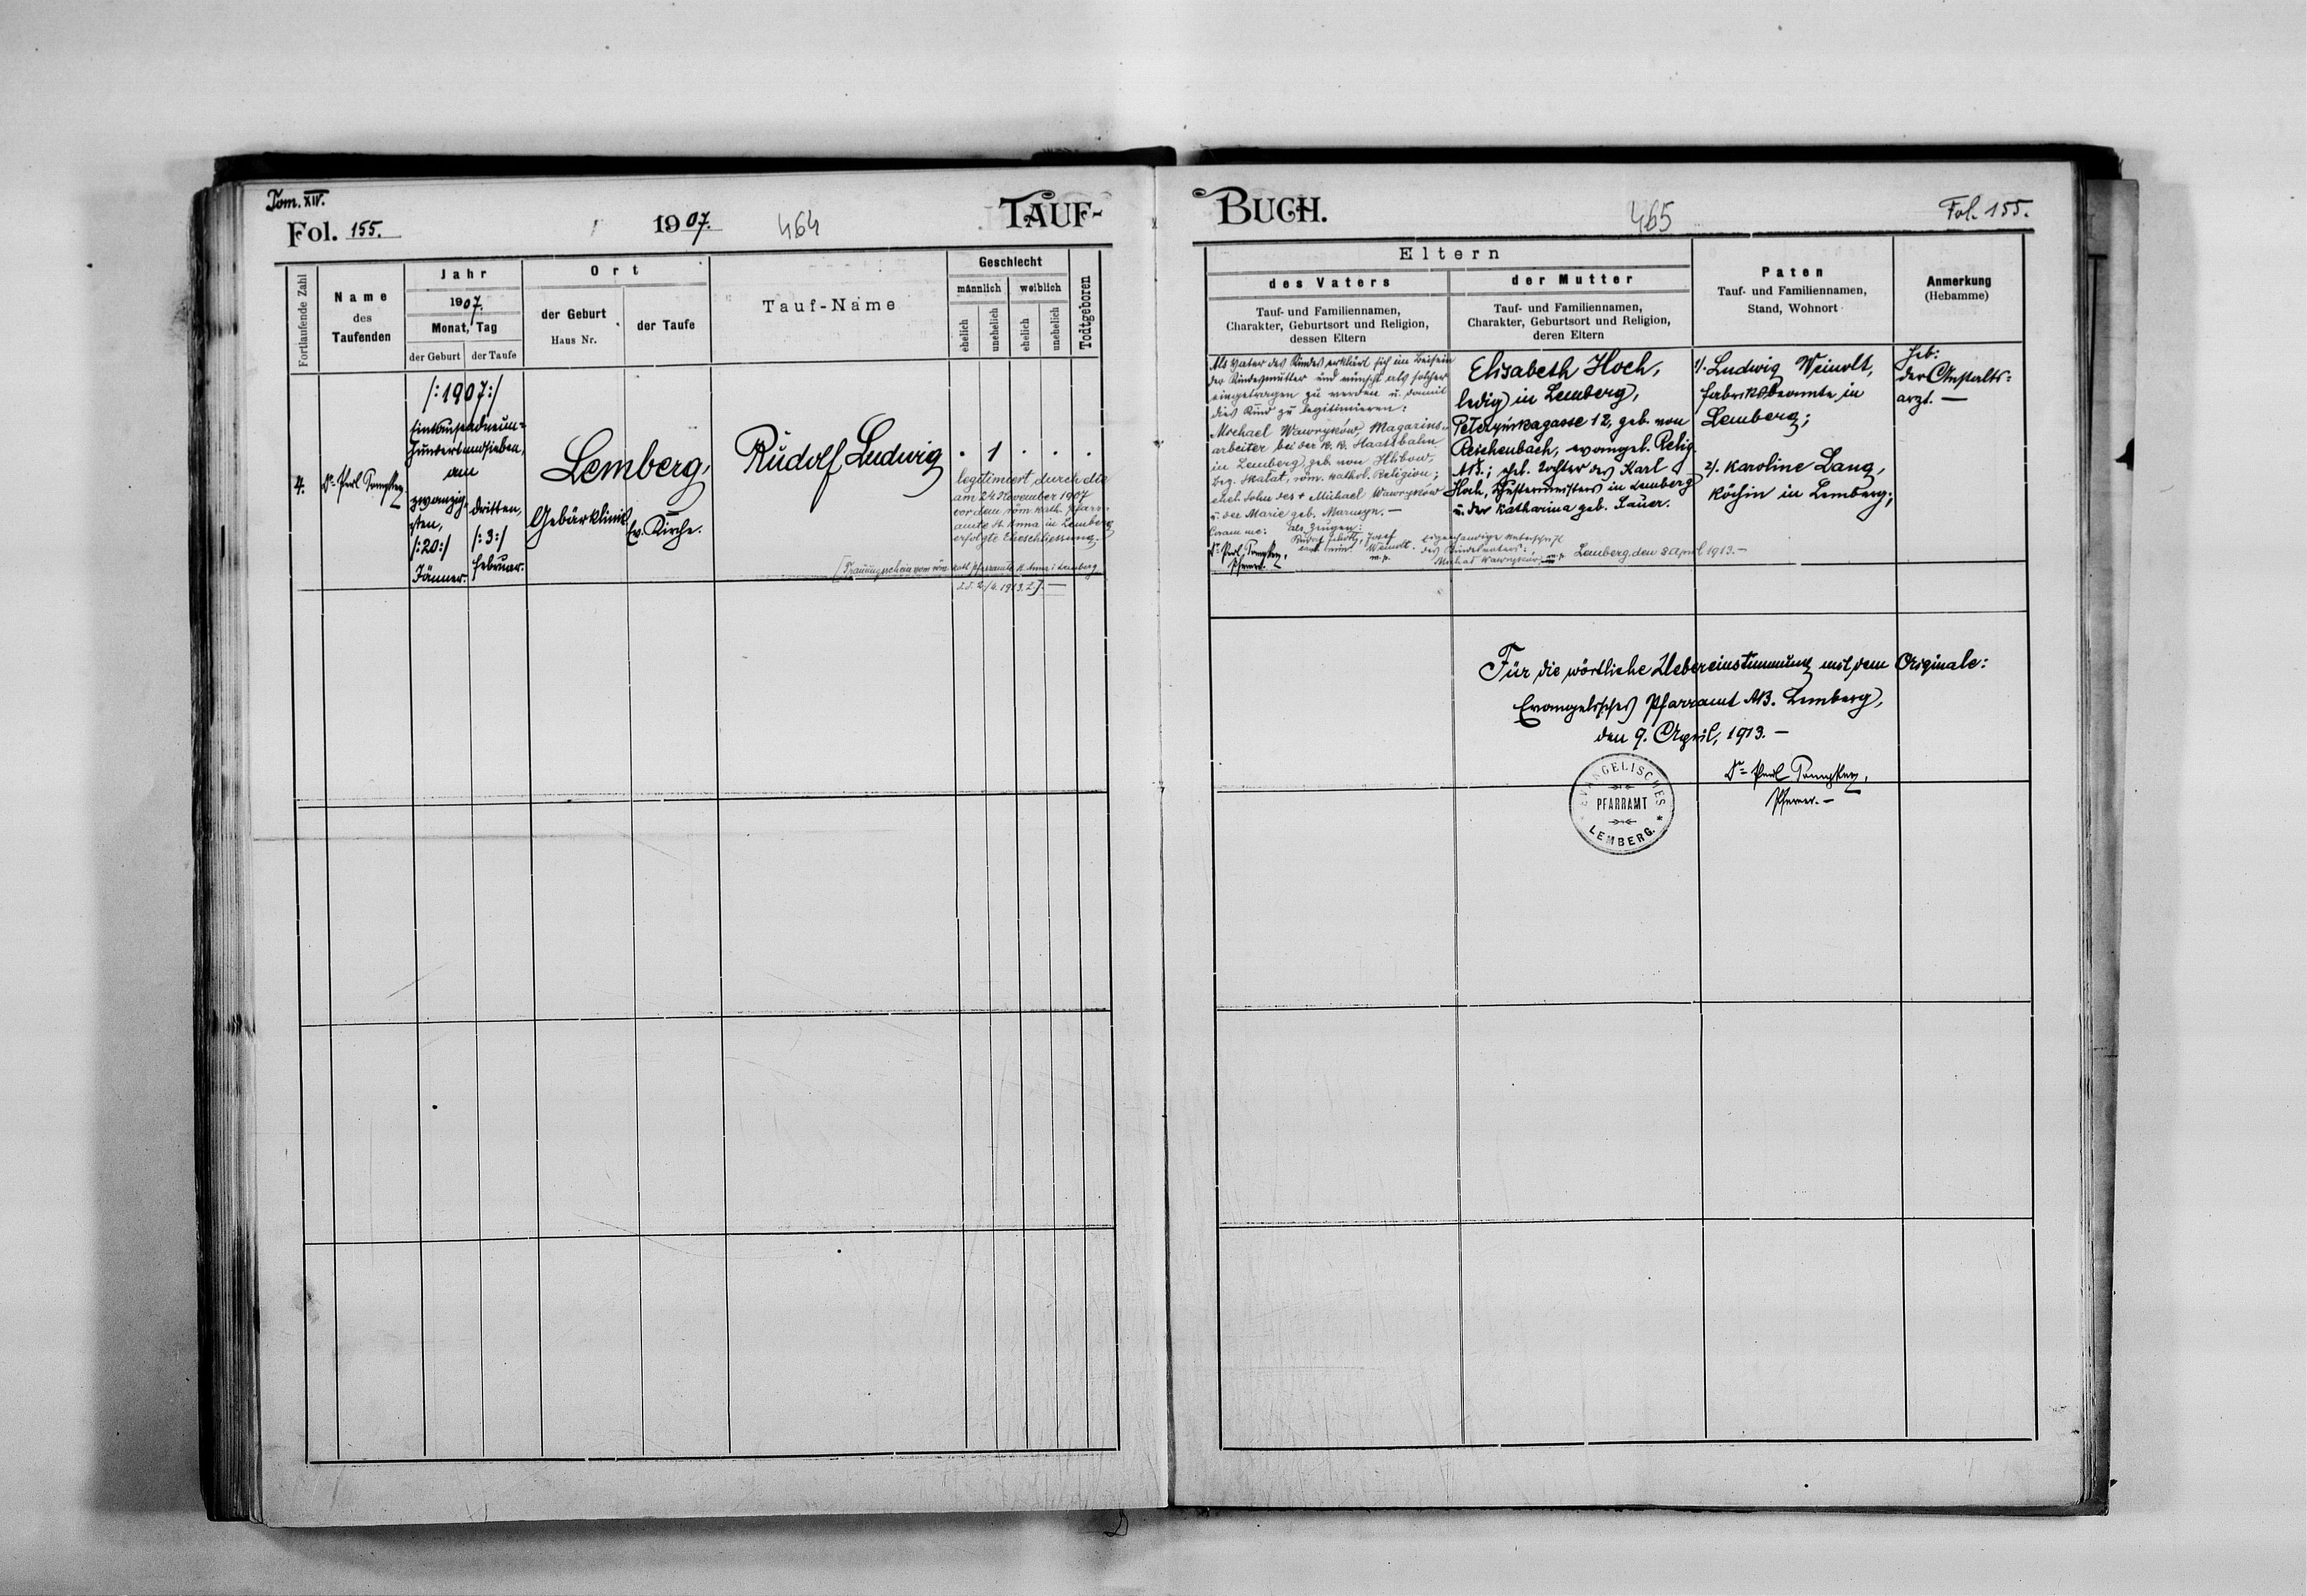 Tom. XIV.
Fol. 155.
1907.
464
TAUF-
Fortlaufende Zahl
Name
des
Taufenden
Jahr
1907.
Monat, Tag
der Geburt
der Taufe
Ort
der Geburt
Haus Nr.
der Taufe
Tauf-Name
Geschlecht
männlich
weiblich
ehelich
unehelich
ehelich
unehelich
Todtgeboren
4.
Dr.
/:1907:/
Eintausendneun-
hundertundsieben,
am
zwanzig-
sten,
/:20:/
Jänner.
dritten,
/:3:/
Februar.
Lemberg,
Gebärklinik
Ev. Kirche.
Rudolf Ludwig
. 1 . . .
legitimiert durch die
am 24 November 1907
vor dem röm. kath. Pfarr-
amte St. Anna in Lemberg
erfolgte Eheschliessung.-
[Trauungsschein vom röm. kath. Pfarramte St. Anna i Lemberg
d.d. 2/4. 1913.
BUCH.
465
Fol. 155.
Eltern
des Vaters
Tauf- und Familiennamen,
Charakter, Geburtsort und Religion,
dessen Eltern
der Mutter
Tauf- und Familiennamen,
Charakter, Geburtsort und Religion,
deren Eltern
Paten
Tauf- und Familiennamen,
Stand, Wohnort
Anmerkung
(Hebamme)
Als Vater des Kindes erklärt sich im Beisein
der Kindesmutter und wünscht als solcher
eingetragen zu werden u. damit
dies Kind zu legitimieren:
Michael Wawryków, Magazins-
arbeiter bei der k. k. Staatsbahn
in Lemberg, geb. von Hlibow,
Bez. Skalat, röm. kathol. Religion;
ehel. Sohn des + Michael Wawryków
u. der Marie geb.
Coram me:
Pfarrer.
als Zeugen:
Josef
Weinolt.
m.p.
eigenhändige Unterschrift
des Kindesvaters:
Michał Wawryków, m.p.
Lemberg, den 8 April 1913.-
Elisabeth Hoch,
ledig in Lemberg,
12, geb. von
Reichenbach, evangel. Relig.
AB.; ehel. Tochter des Karl
Hoch, in Lemberg
u. der Katharina geb. Lauer.
1/. Ludwig Weinolt,
Fabriksbeamte in
Lemberg;
2/. Karoline Lang,
Köchin in Lemberg;
Heb:
der Anstalts-
arzt. —
Für die wörtliche Uebereinstimmung mit dem Originale:
Evangelisches Pfarramt AB. Lemberg,
den 9. April, 1913. -
Dr.
Pfarrer. -
EVANGELISCHES
PFARRAMT
LEMBERG.